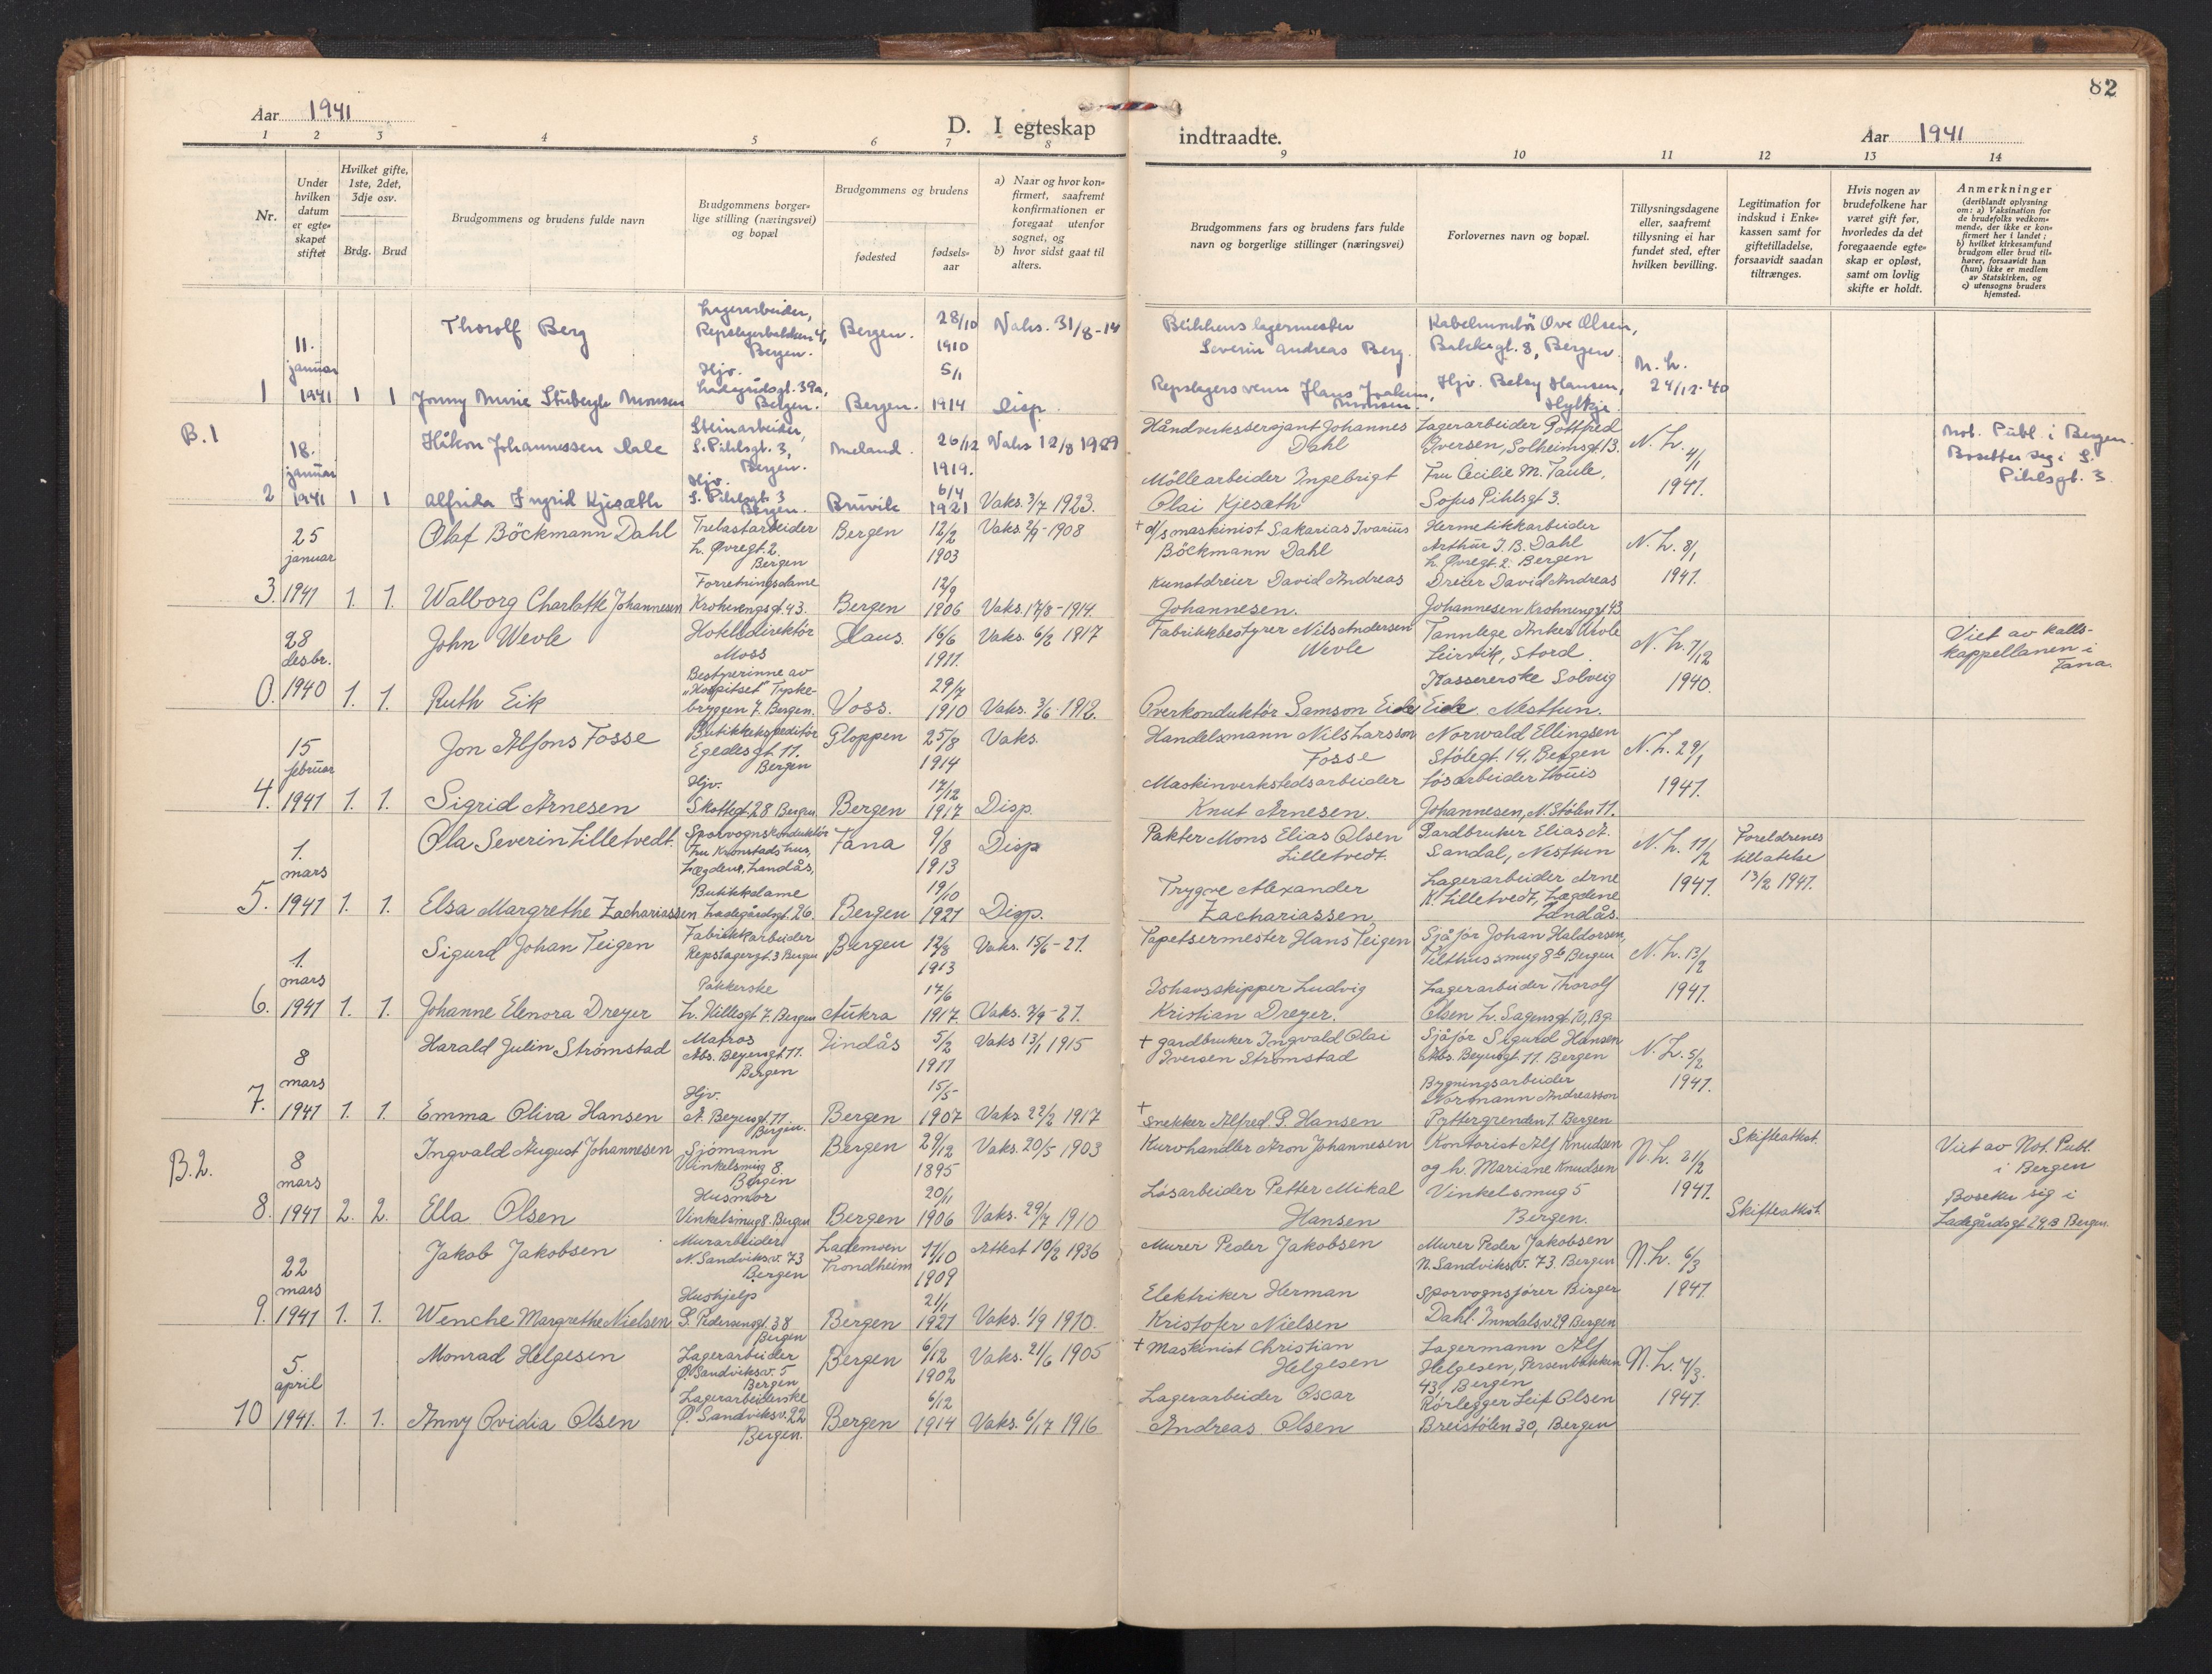 82
Aar 1941
D. I egteskap
indtraadte.
Aar 1941
1 2 3 4 5 6 7 8
9 10 11 12 13 14
Nr.
Under hvilken datum er egteskapet stiftet
Hvilket gifte, 1ste, 2det, 3dje osv.
Brdg. Brud
Brudgommens og brudens fulde navn
Brudgommens borgerlige stilling (næringsvei) og bopæl
Brudgommens og brudens
fødested
fødselsaar
a) Naar og hvor konfirmert, saafremt konfirmationen er foregaat utenfor sognet, og
b) hvor sidst gaat til alters.
Brudgommens fars og brudens fars fulde navn og borgerlige stillinger (næringsvei)
Forlovernes navn og bopæl.
Tillysningsdagene eller, saafremt tillysning ei har fundet sted, efter hvilken bevilling.
Legitimation for indskud i Enkekassen samt for giftetilladelse, forsaavidt saadan tiltrænges.
Hvis nogen av brudefolkene har været gift før, hvorledes da det foregaaende egteskap er opløst, samt om lovlig skifte er holdt.
Anmerkninger (deriblandt oplysning om: a) Vaksination for de brudefolks vedkommende, der ikke er konfirmert her i landet; b) hvilket kirkesamfund brudgom eller brud tilhører, forsaavidt han (hun) ikke er medlem av Statskirken, og c) utensogns bruders hjemsted.
1
11. januar 1941
1 1
Thorolf Berg
Lagerarbeider,
Bergen.
Bergen.
28/10 1910
Vaks. 31/8-14
lagermester
Severin Andreas Berg.
Ove Olsen,
Bakkegt. 8, Bergen.
N. L.
24/12-40
Jonny Marie Monsen
Hjv.
Ladegårdsgt. 39a,
Bergen.
Bergen.
5/1 1914
Disp.
Repslagersvenn Hans Joakim
Monsen.
Hjv. Betsy Hansen,
Hylkje.
B.1
2
18. januar 1941
1 1
Håkon Johannessen Dale
Steinarbeider,
S. Pihlsgt. 3,
Bergen.
Meland.
26/12 1919.
Vaks 12/8 1929
Håndverksersjant Johannes
Dahl
Lagerarbeider Gottfred
Iversen, Solheimsgt. 13.
N. L. 4/1
1941.
Not. Publ. i Bergen.
Bosetter seg i S.
Pihlsgt. 3.
Alfrida Ingrid Kjesæth
Hjv.
S. Pihlsgt. 3
Bergen.
Bruvik
6/4 1921
Vaks. 3/7 1923.
Möllearbeider Ingebrigt
Olai Kjesæth
Fru Cecilie M. Taule,
Sofus Pihlsgt 3.
3.
25 januar 1941
1. 1.
Olaf Böckmann Dahl
Trelastarbeider
L. Øvregt. 2.
Bergen
Bergen
12/2 1903
Vaks. 2/9-1908
+ d/s maskinist Sakarias Ivarius
Böckmann Dahl
Hermetikkarbeider
Arthur J. B. Dahl
L. Øvregt. 2. Bergen
N. L. 8/1
1941.
Walborg Charlotte Johannesen
Forretningsdame
Krohnengsgt. 43.
Bergen
12/9 1906
Vaks. 17/8-1914.
Kunstdreier David Andreas
Johannesen.
Dreier David Andreas
Johannesen Krohnengsgt 43
0.
28 desbr. 1940
1. 1.
John Wevle
Hotelldirektör
Moss
Haus.
16/6 1911.
Vaks. 6/2 1917
Fabrikkbestyrer Nils Andersen
Wevle
Tannlege Anker Wevle
Leirvik, Stord.
N. L. 7/12
1940.
Viet av kallskappellanen i
Fana.
Ruth Eik
Bestyrerinne av
"Hospitset" Tyskebryggen 7. Bergen.
Voss.
29/7 1910
Vaks. 3/6-1912.
Overkonduktör Samson Eide
Kassererske Solveig
Eide. Nesttun.
4.
15 februar 1941
1. 1.
Jon Alfons Fosse
Butikkekspeditör
Egedesgt. 11.
Bergen
Gloppen
25/8 1914
Vaks.
Handelsmann Nils Larsson
Fosse
Norwald Ellingsen
Stölegt. 14, Bergen
N. L. 29/1
1941.
Sigrid Arnesen
Hjv.
Skottegt. 28 Bergen
Bergen
17/12 1917
Disp.
Maskinverkstedsarbeider
Knut Arnesen.
Lösarbeider Louis
Johannesen, N. Stölen 11.
5.
1. mars 1941
1. 1.
Ola Severin Lilletvedt.
Sporvognskonduktör
Fru Kronstads hus,
Lægdene, Landås,
Fana
9/8 1913
Disp
Pakter Mons Elias Olsen
Lilletvedt.
Gardbruker Elias A.
Sandal, Nesttun
N. L. 11/2
1941.
Foreldrenes
tillatelse
13/2 1941.
Elsa Margrethe Zachariassen
Butikkdame
Ladegårdsgt. 26.
Bergen
19/10 1921
Disp.
Trygve Alexander
Zachariassen.
Lagerarbeider Arne
K. Lilletvedt, Lægdene
Landås.
6.
1. mars 1941
1. 1.
Sigurd Johan Teigen
Fabrikkarbeider
Repslagergt. 3 Bergen
Bergen
12/8 1913
Vaks. 15/6-21.
Tapetsermester Hans Teigen
Sjåför Johan Haldorsen,
Bergen
N. L. 13/2
1941.
Johanne Elenora Dreyer
Pakkerske
L. Hillesgt. 7. Bergen
Aukra
17/6 1917.
Vaks. 2/9-21.
Ishavsskipper Ludvig
Kristian Dreyer.
Lagerarbeider Thorolf
Olsen L. Sagensgt. 10, Bg.
7.
8 mars 1941
1. 1.
Harald Julin Strömstad
Matros
Abs. Beyersgt. 11.
Bergen
Lindås
5/2 1911
Vaks 13/1 1915
+ gardbruker Ingvald Olai
Iversen Strömstad
Sjåför Sigurd Hansen
Abs. Beyersgt. 11. Bergen
N. L. 5/2
1941.
Emma Oliva Hansen
Hjv.
A. Beyersgt. 11.
Bergen.
Bergen
15/5 1907
Vaks 22/2 1917
+
snekker Alfred G. Hansen
Bygningsarbeider
Normann Andreasson
Pyttergrenden 1. Bergen
B.2.
8.
8 mars 1941
2. 2.
Ingvald August Johannesen
Sjömann
Vinkelsmug 8.
Bergen
Bergen
29/12 1895
Vaks. 20/5 1903
Kurvhandler Aron Johannesen
Kontorist Alf Knudsen
og h. Mariane Knudsen
N. L. 21/2
1941.
Skifteattest.
Viet av Not. Publ.
i Bergen
Ella Olsen
Husmor
Vinkelsmug 8. Bergen
Bergen
20/11 1906
Vaks. 29/7 1910
Lösarbeider Petter Mikal
Hansen
Vinkelsmug 5
Bergen.
Skifteattest.
Bosetter sig i
Ladegårdsgt. 29B Bergen.
9.
22 mars 1941
1. 1.
Jakob Jakobsen
Murarbeider
N. Sandviksv. 73
Bergen
Lademoen
Trondheim
11/10 1909
Attest 10/2 1936
Murer Peder Jakobsen
Murer Peder Jakobsen
N. Sandviksv. 73. Bergen
N. L. 6/3
1941.
Wenche Margrethe Nielsen
Hushjelp
S. Pedersensgt. 38
Bergen
Bergen
21/1 1921
Vaks. 1/9 1910.
Elektriker Herman
Kristofer Nielsen
Sporvognsförer Birger
Dahl. Inndalsv. 29 Bergen
10
5. april 1941.
1. 1.
Monrad Helgesen
Lagerarbeider
Ø. Sandviksv. 5
Bergen
Bergen
6/12 1902
Vaks. 21/6 1905
+ Maskinist Christian
Helgesen
Lagermann Alf
Helgesen, Persenbakken
43, Bergen
N. L. 7/3.
1941.
Anny Ovidia Olsen
Lagerarbeiderske
Ø. Sandviksv. 22
Bergen.
Bergen
6/12 1914
Vaks. 6/17 1916
Lagerarbeider Oscar
Andreas Olsen
Rörlegger Leif Olsen
Breistölen 30, Bergen